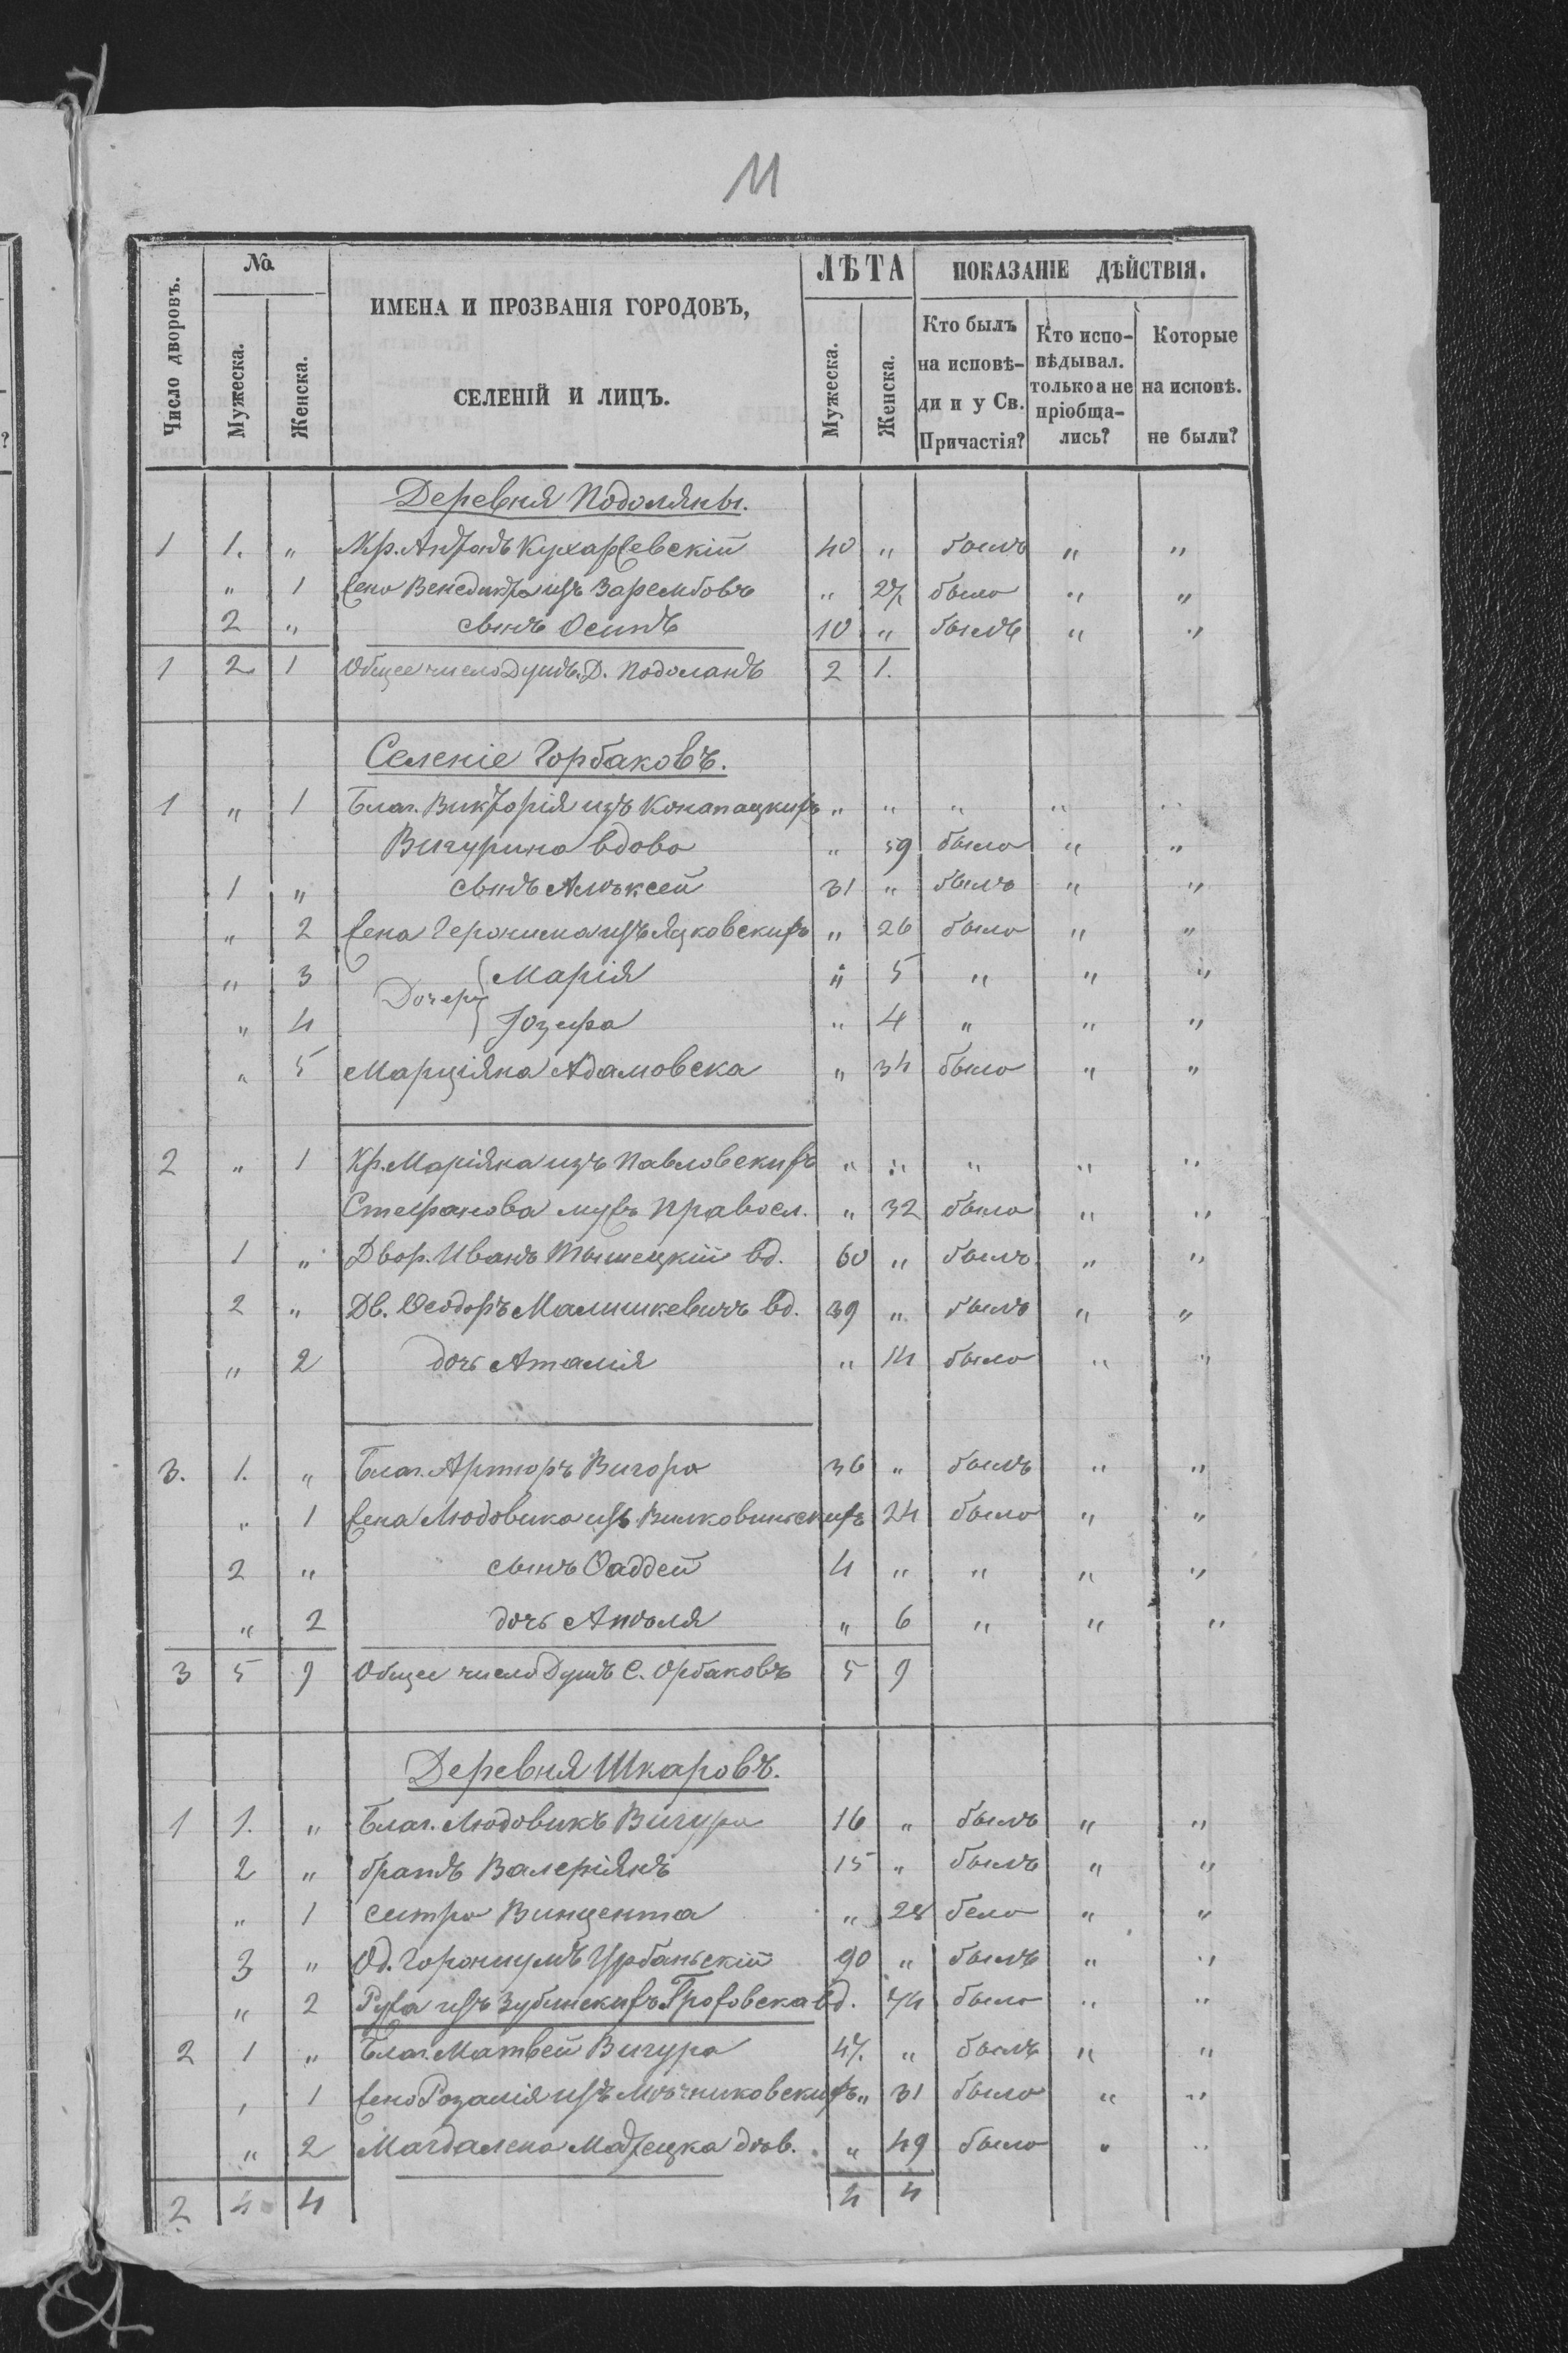 11
Число дворовъ. № Мужеска. Женска. ИМЕНА И ПРОЗВАНІЯ ГОРОДОВЪ, СЕЛЕНІЙ И ЛИЦЪ. ЛѢТА Мужеска. Женска. ПОКАЗАНІЕ ДѢЙСТВІЯ. Кто былъ на исповѣди и у Св. Причастія? Кто исповѣдывал. только а не пріобщались? Которые на исповѣ. не были?
Деревня Подоляны.
1 1. „ Кр. Антонъ Кухаржевскій 40 „ былъ „ „
„ 1 жена Венедикта изъ Зарембовъ „ 27 была „ „
2 „ сынъ Осипъ 10 „ былъ „ „
1 2 1 Общее число Душъ. Д. Подолянъ 2 1.
Селеніе Горбаковъ.
1 „ 1 Благ. Викторія изъ Конапацкихъ „ „ „ „ „
Вигурина вдова „ 59 была „ „
1 „ сынъ Алѣксей 31 „ былъ „ „
„ 2 жена Геронима изъ Яцковскихъ „ 26 была „ „
„ 3 Дочери Марія „ 5 „ „ „
„ 4 Юзефа „ 4 „ „ „
„ 5 Марціяна Адамовска „ 34 была „ „
2 „ 1 Кр. Маріяна изъ Павловскихъ „ „ „ „ „
Стефанова мужъ правосл. „ 32 была „ „
1 „ Двор. Иванъ Тышецкій вд. 60 „ былъ „ „
2 „ Дв. Ѳеодоръ Малишкевичъ вд. 39 „ былъ „ „
„ 2 дочь Аталія „ 14 была „ „
3. 1. „ Благ. Артюръ Вигора 36 „ былъ „ „
„ 1 жена Людовика изъ Вилковиньскихъ 24 была „ „
2 „ сынъ Ѳаддей 4 „ „ „ „
„ 2 дочь Анѣля „ 6 „ „ „
3 5 9 Общее число Душъ С. Орбаковъ 5 9
Деревня Шкаровъ.
1 1. „ Благ. Людовикъ Вигура 16 „ былъ „ „
2 „ братъ Валеріянъ 15 „ былъ „ „
„ 1 систра Винцента „ 28 бела „ „
3 „ Од. Горонимъ Урбаньскій 90 „ былъ „ „
„ 2 Ружа изъ Зубинскихъ Грожовска вд. 74 была „ „
2 1 „ Благ. Матвей Вигура 47. „ былъ „ „
„ 1 жена Розалія изъ Мѣчниковскихъ „ 31 была „ „
„ 2 Магдалена Мадзецка дѣв. „ 49 была „ „
2 4 4 4 4